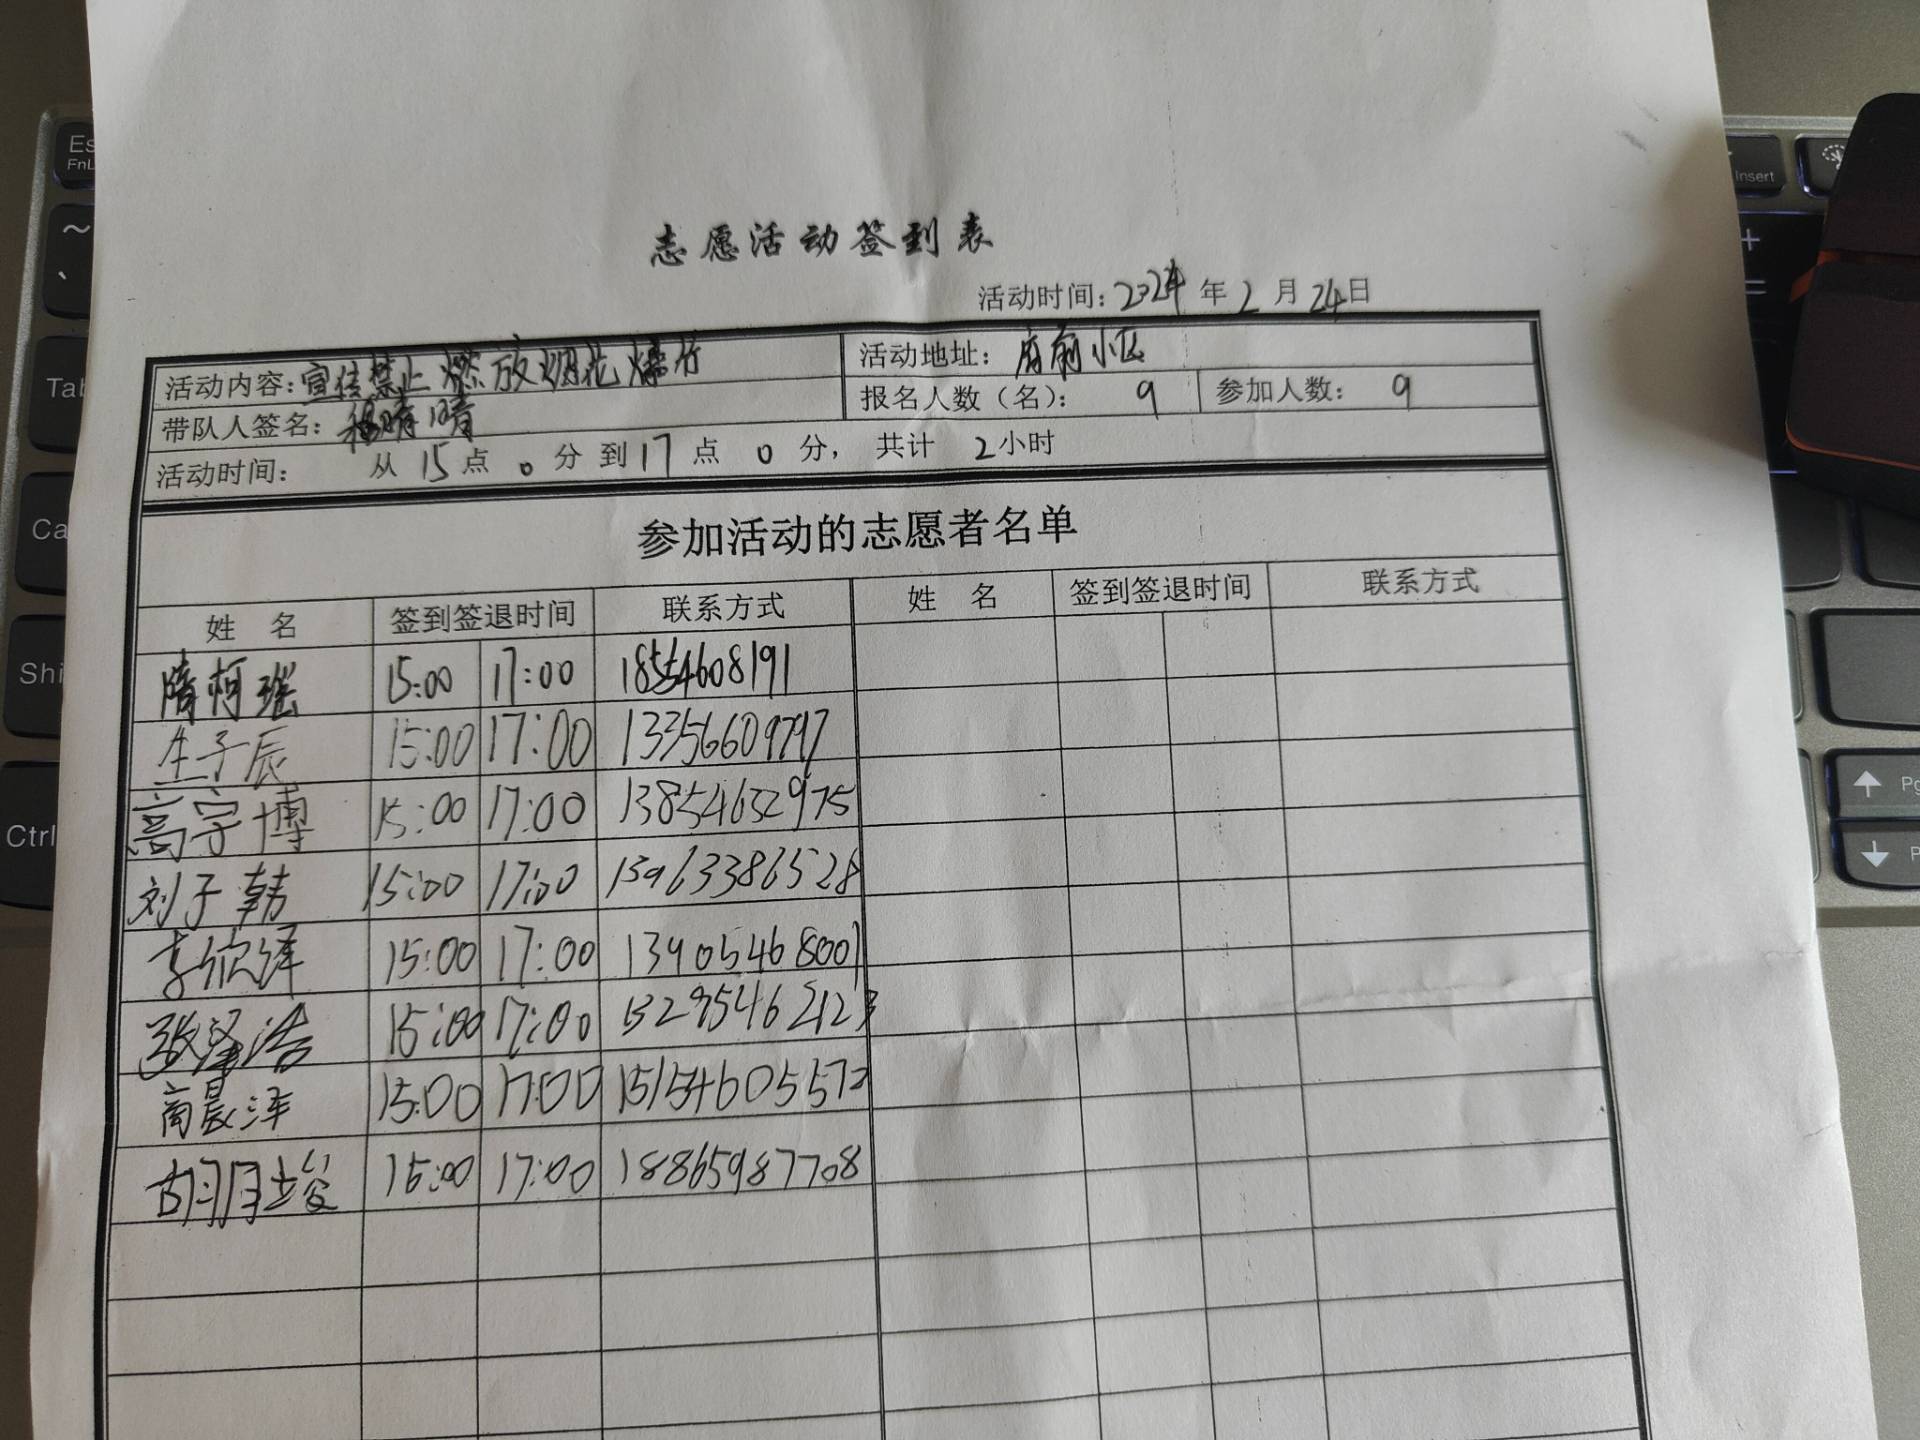 志愿活动签到表
活动时间：2024年 2 月 24日
活动内容：宣传禁止燃放烟花爆竹 活动地址：府前小区
带队人签名： 晴晴 报名人数（名）： 9 参加人数： 9
活动时间： 从 15点 0 分 到 17 点 0 分， 共计 2小时
参加活动的志愿者名单
姓 名 签到签退时间 联系方式 姓 名 签到签退时间 联系方式
隋柯瑶 15:00 17:00 18554608191
生子辰 15:00 17:00 13356609797
高宇博 15:00 17:00 13854632975
刘子韩 15:00 17:00 13963386528
李欣泽 15:00 17:00 13905468001
张泽浩 15:00 17:00 13295462123
商晨泽 15:00 17:00 15154605572
胡月峻 15:00 17:00 18865987708
Esc
FnL
~
Tab
Ca
Shi
Ctrl
Insert
+
=
↑ Pg
↓ P